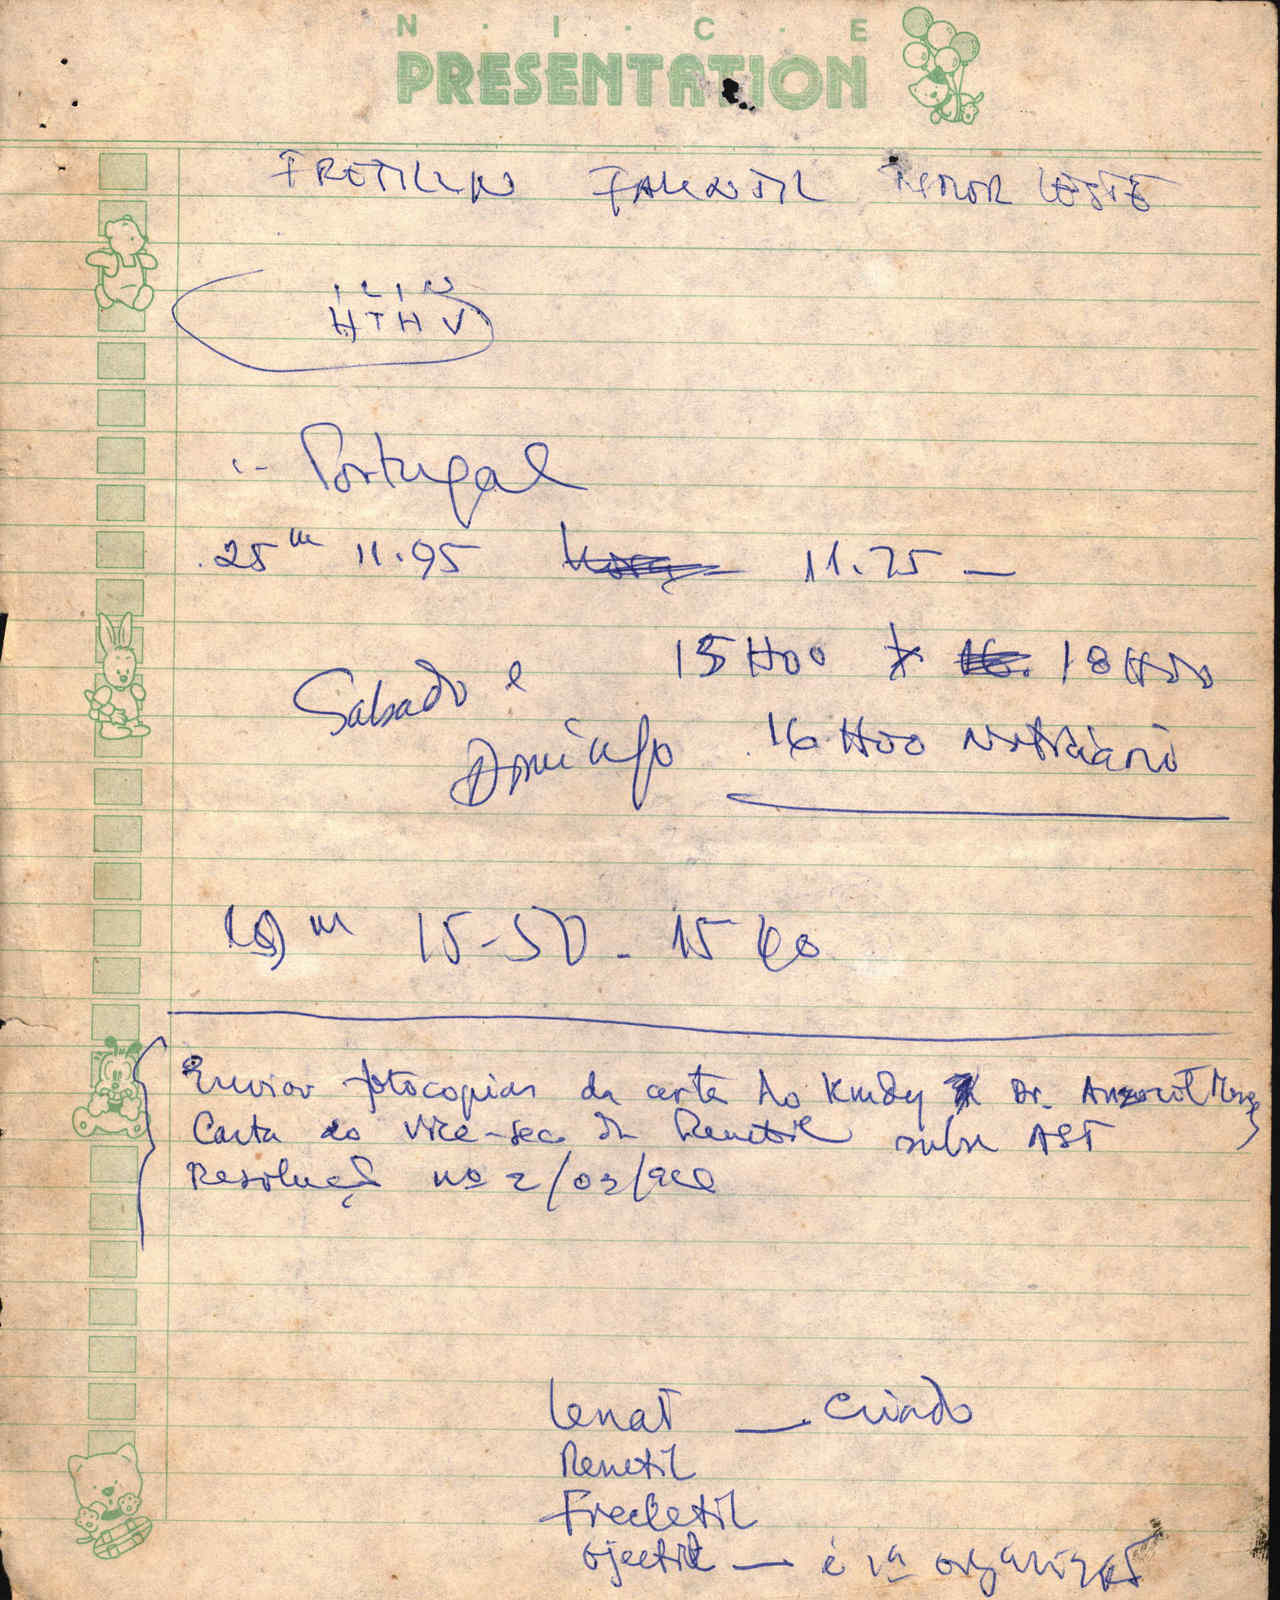 N · I · C · E
PRESENTATION
FRETILIN FALINTIL TIMOR LESTE
I L I N
H T H V
:- Portugal
25 m 11.95 11.75 —
15H00 18H00
Sabado e
Domingo 16H00 Noticiário
19 m 15-50 - 15 60
Enviar fotocopias da carta do Kmdy Dr.
Carta do Vice-sec da Renetil sobre AST
Resolução nº 2/03/
Lenat — Criado
Renetil
Frecletil
Ojectil — é 1ª organizaç